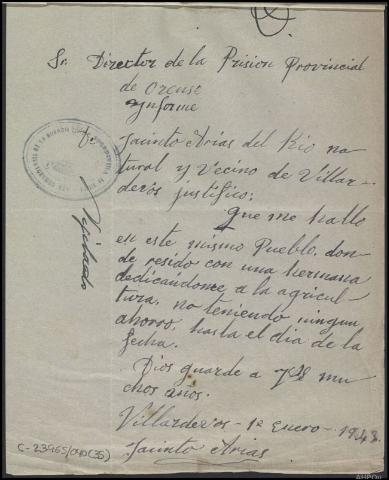 Sr. Director de la Prision Provincial
de Orense
Ynforme
Jacinto Arias del Rio na
tural y Vecino de Villar-
devós justifico:
Que me hallo
en este mismo Pueblo, don-
de resido con una hermana
dedicandome a la agricul-
tura, no teniendo ningun
ahorro, hasta el dia de la
fecha.
Dios guarde a Vd mu-
chos años.
Villardevos - 1º Enero - 1943.
Jacinto Arias
C-23965/040(35)
AHPOu